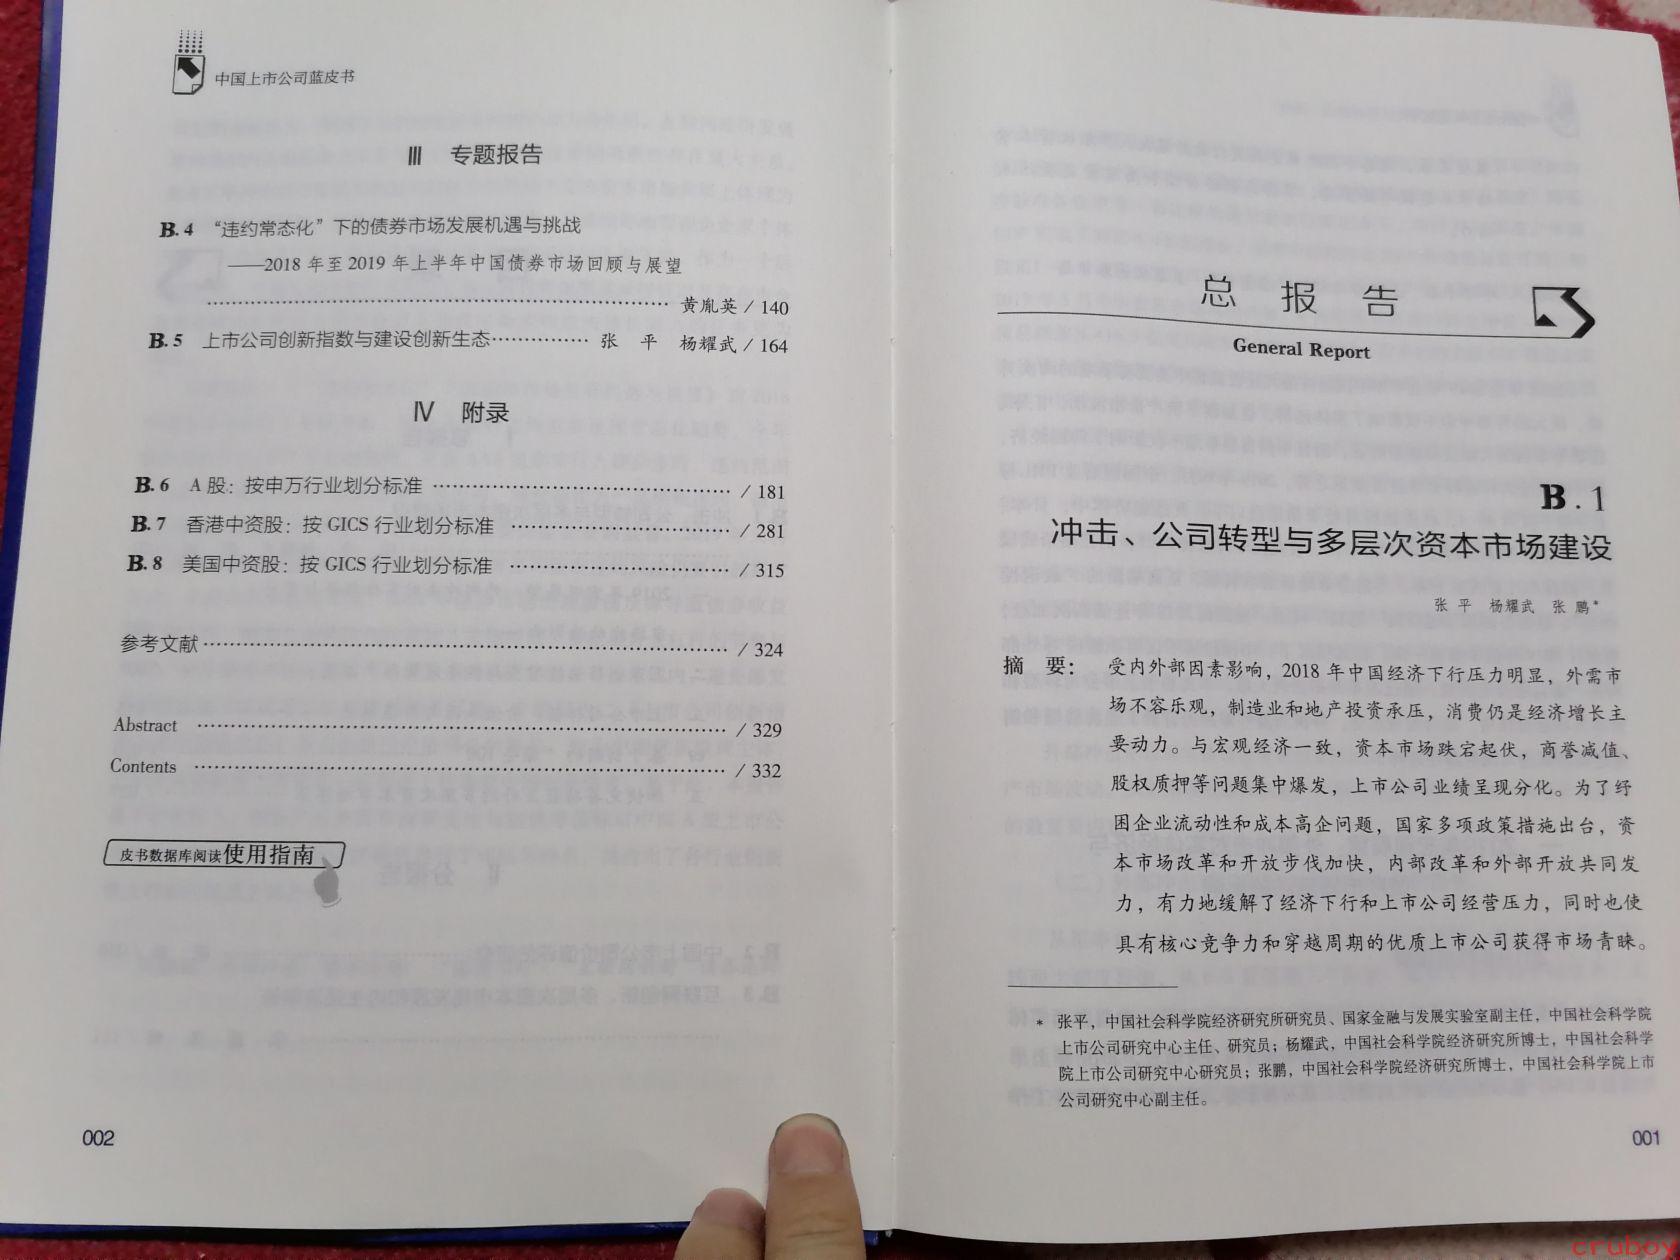 中国上市公司蓝皮书
Ⅲ 专题报告
B.4 “违约常态化”下的债券市场发展机遇与挑战
——2018年至2019年上半年中国债券市场回顾与展望
黄胤英 / 140
B.5 上市公司创新指数与建设创新生态 张 平 杨耀武 / 164
Ⅳ 附录
B.6 A股：按申万行业划分标准 / 181
B.7 香港中资股：按GICS行业划分标准 / 281
B.8 美国中资股：按GICS行业划分标准 / 315
参考文献 / 324
Abstract / 329
Contents / 332
皮书数据库阅读使用指南
002
总 报 告
General Report
B.1
冲击、公司转型与多层次资本市场建设
张 平 杨耀武 张 鹏*
摘 要： 受内外部因素影响，2018年中国经济下行压力明显，外需市
场不容乐观，制造业和地产投资承压，消费仍是经济增长主
要动力。与宏观经济一致，资本市场跌宕起伏，商誉减值、
股权质押等问题集中爆发，上市公司业绩呈现分化。为了纾
困企业流动性和成本高企问题，国家多项政策措施出台，资
本市场改革和开放步伐加快，内部改革和外部开放共同发
力，有力地缓解了经济下行和上市公司经营压力，同时也使
具有核心竞争力和穿越周期的优质上市公司获得市场青睐。
* 张平，中国社会科学院经济研究所研究员、国家金融与发展实验室副主任，中国社会科学院
上市公司研究中心主任、研究员；杨耀武，中国社会科学院经济研究所博士，中国社会科学
院上市公司研究中心研究员；张鹏，中国社会科学院经济研究所博士，中国社会科学院上市
公司研究中心副主任。
001
cruboy